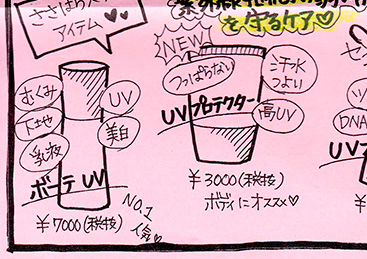 アイテム♡
を守るケア♡
NEW
むくみ
UV
下地
美白
乳液
ボーテ UV
¥7000(税抜)
NO.1
人気♡
つっぱらない
汗水
つよい
UVプロテクター
高UV
¥3000(税抜)
ボディにオススメ♡
DNA
UVプ
¥